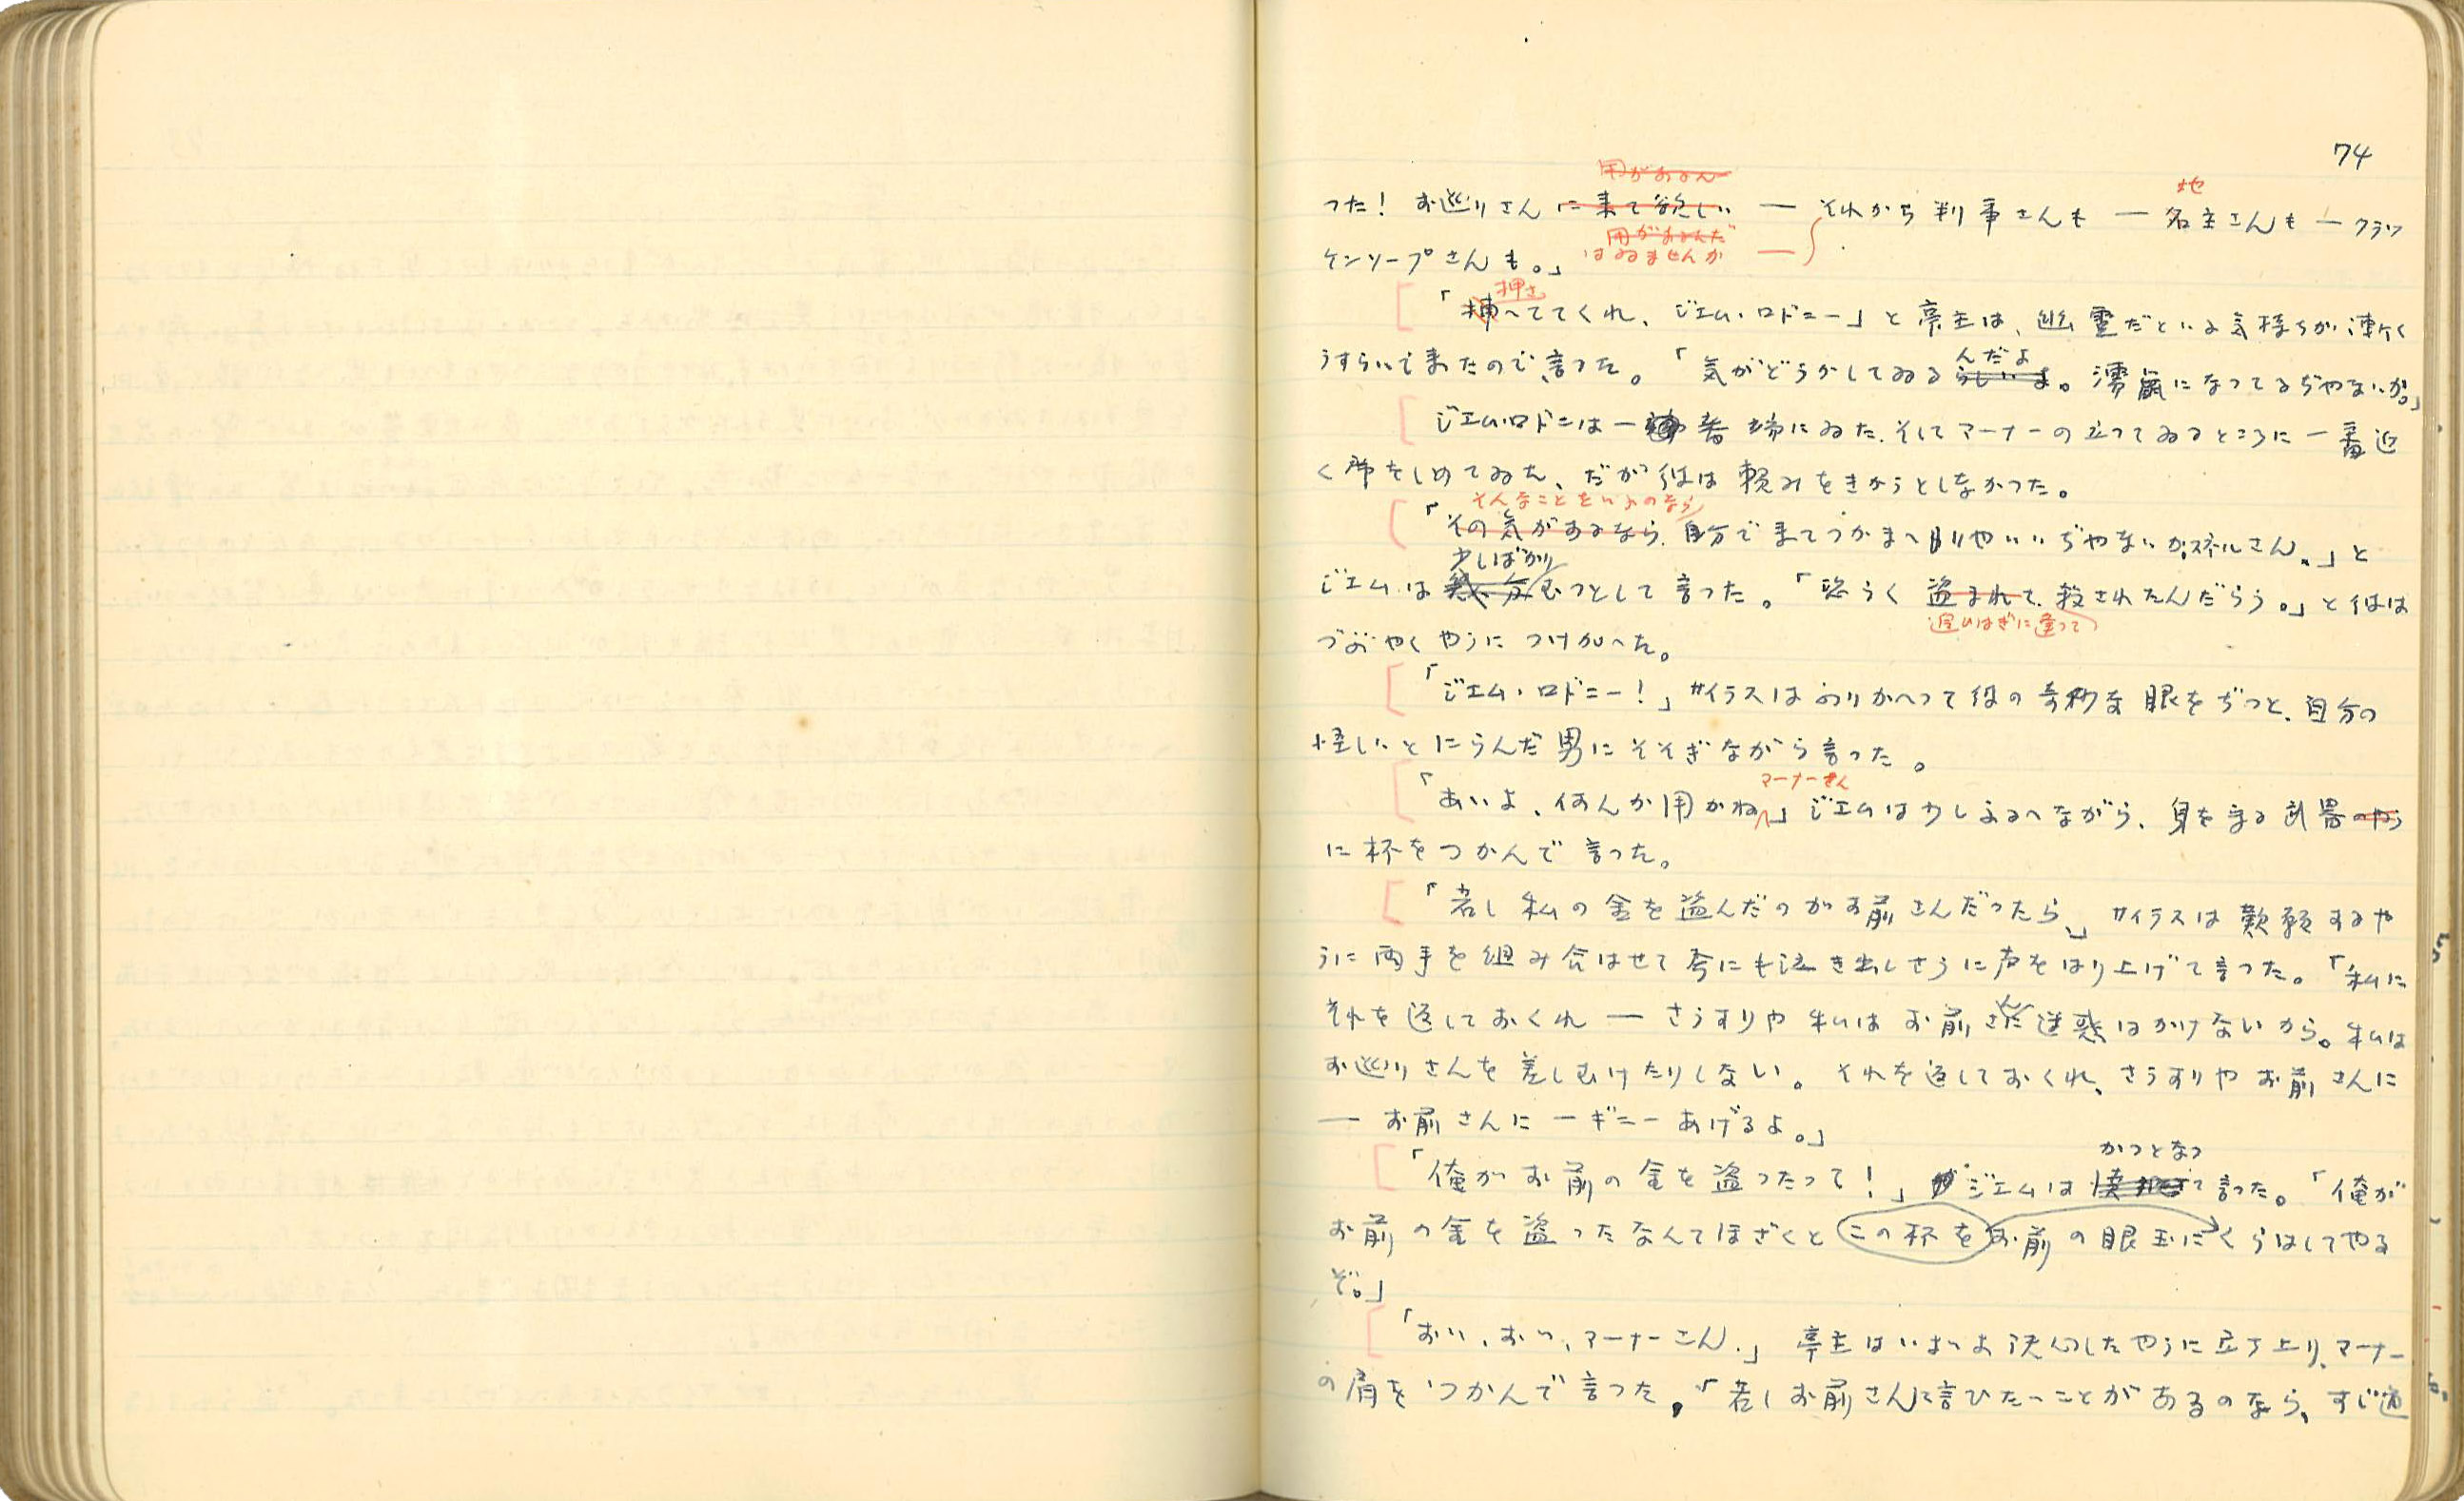 74
用があるん
地
つた! お巡りさんに来て欲しい — それから判事さんも — 名主さんも — クラツ
用があるんだ
はゐませんか —
ケンソープさんも。」
押さ
「捕へててくれ、ジエム・ロドニー」と亭主は、幽霊だといふ気持ちが漸く
んだよ
うすらいで来たので、言つた。「気がどうかしてゐるらしいよ。濡鼠になつてるぢやないか。」
ジエム・ロドニは一番端にゐた、そしてマーナーの立つてゐるところに一番近
く席をしめてゐた、だが彼は頼みをきかうとしなかつた。
そんなことをいふのなら
「その気があるなら、自分で来てつかまへりやいいぢやないか、スネルさん。」と
少しばかり
ジエムは幾分むつとして言つた。「恐らく盗まれて、殺されたんだらう。」と彼は
追ひはぎに遭つて
つぶやくやうにつけ加へた。
「ジエム・ロドニー!」サイラスはふりかへつて彼の奇妙な眼をぢつと、自分の
怪しいとにらんだ男にそそぎながら言つた。
マーナーさん
「あいよ、何んか用かね」ジエムは少しふるへながら、身を守る武器のやう
に杯をつかんで言つた。
「若し私の金を盗んだのがお前さんだつたら、」サイラスは歎願するや
うに両手を組み合はせて今にも泣き出しさうに声をはり上げて言つた。「私に
ん
それを返しておくれ — さうすりや私はお前さに迷惑はかけないから。私は
お巡りさんを差しむけたりしない。それを返しておくれ、さうすりやお前さんに
— お前さんに一ギニーあげるよ。」
かつとなつ
「俺がお前の金を盗つたつて!」ジエムは て言つた。「俺が
お前の金を盗つたなんてほざくとこの杯をお前の眼玉にくらはしてやる
ぞ。」
「おい、おい、マーナーさん。」亭主はいよいよ決心したやうに立ち上り、マーナー
の肩をつかんで言つた。「若しお前さんに言ひたいことがあるのなら、すじ道